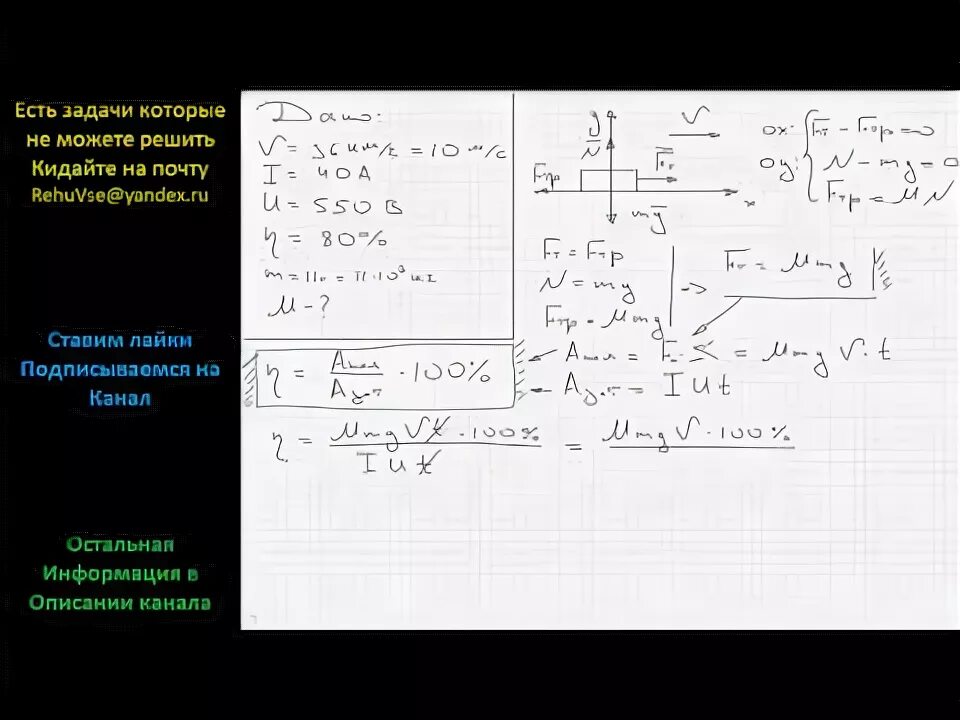 Есть задачи которые
не можете решить
Кидайте на почту
RehuVse@yandex.ru
Ставим лайки
Подписываемся на
Канал
Остальная
Информация в
Описании канала
Дано:
V = 36 км/ч = 10 м/с
I = 40 A
U = 550 В
η = 80%
m = 11т = 11·10³ кг
μ - ?
y
N
V
Fтр
Fт
x
mg
ox: Fт - Fтр = 0
oy: N - mg = 0
Fтр = μN
Fт = Fтр
N = mg
Fтр = μmg
-> Fт = μmg
η = Aпол / Aзат · 100%
Aпол = Fт · S = μmg V · t
Aзат = I U t
η = μmg V t · 100% / I U t = μmg V · 100%